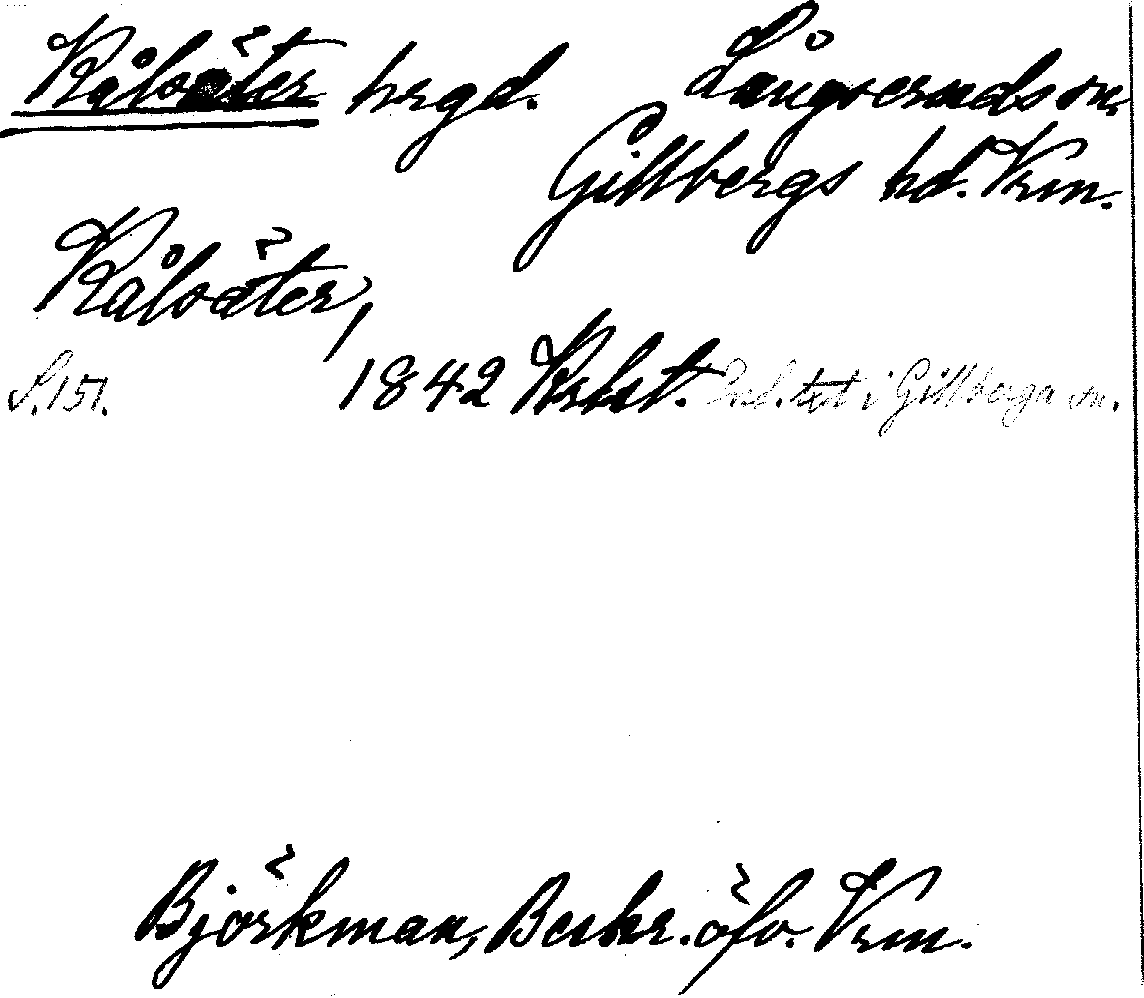 Kålsäter hrgd. Långseruds sn.
Gillbergs hd. Vrm.
Kålsäter,
S. 151. 1842 Krkst. txt i Gillberga sn.
Björkman, Beskr. öfv. Vrm.